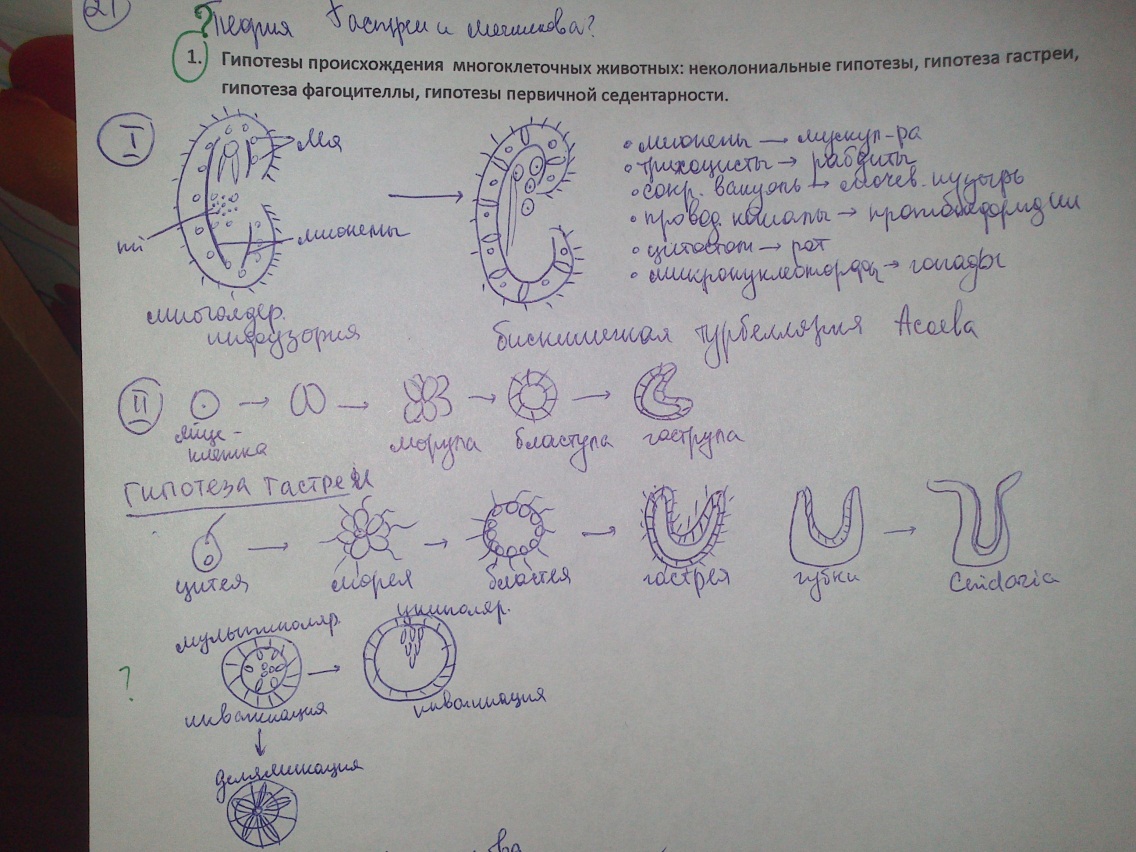 21
? Теория Гастреи и Мечникова?
1. Гипотезы происхождения многоклеточных животных: неколониальные гипотезы, гипотеза гастреи,
гипотеза фагоцителлы, гипотезы первичной седентарности.
I
Мя
мионемы
mi
многоядер.
инфузория
• мионемы → мускул-ра
• трихоцисты → рабдиты
• сокр. вакуоль → мочев. пузырь
• провод. каналы → протонефридии
• цитостом → рот
• → гонады
турбеллярия
II
яйце-
клетка
морула
бластула
гаструла
Гипотеза гастреи
цитея
морея
бластея
гастрея
губки
Cnidaria
мультиполяр.
униполяр.
?
инвагинация
инвагинация
деляминация